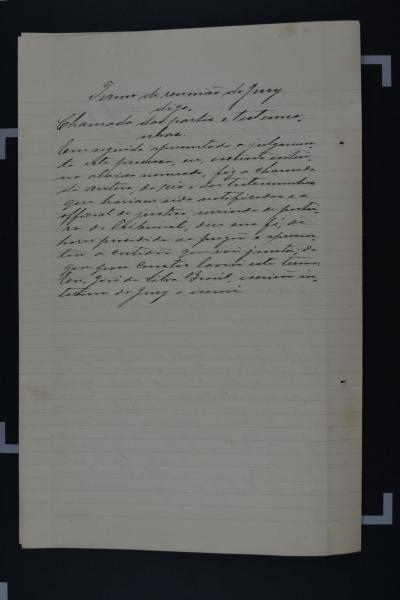 Termo de reunião do Jury
digo,
Chamada das partes e testemu-
nhas.
Em seguida apresentado a julgamen-
to este processo, eu, escrivão interi-
no abaixo nomeado, fiz a chamada
da autora, do réo e das testemunhas
que haviam sido notificadas e o
official de justiça, servindo de portei-
ro do Tribunal, deu sua fé, de
haver procedido ao pregão e apresen-
tou a certidão que vai junta; do
que para constar lavrei este termo.
Eu, José da Silva Brasil, escrivão in-
terino do Jury o escrevi.